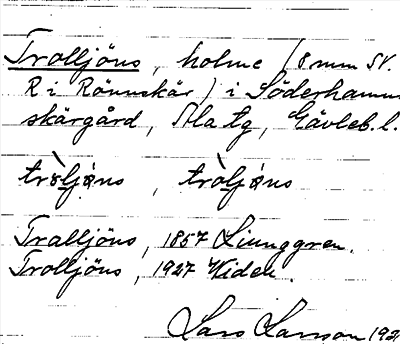 Trolljöns, holme (8 mm SV.
R i Rönnskär) i Söderhamns
skärgård, Ala tg, Gävleb. l.
tròljöns, tròljöns
Tralljöns, 1857 Ljunggren.
Trolljöns, 1927 Widén.
Lars Larsson 192